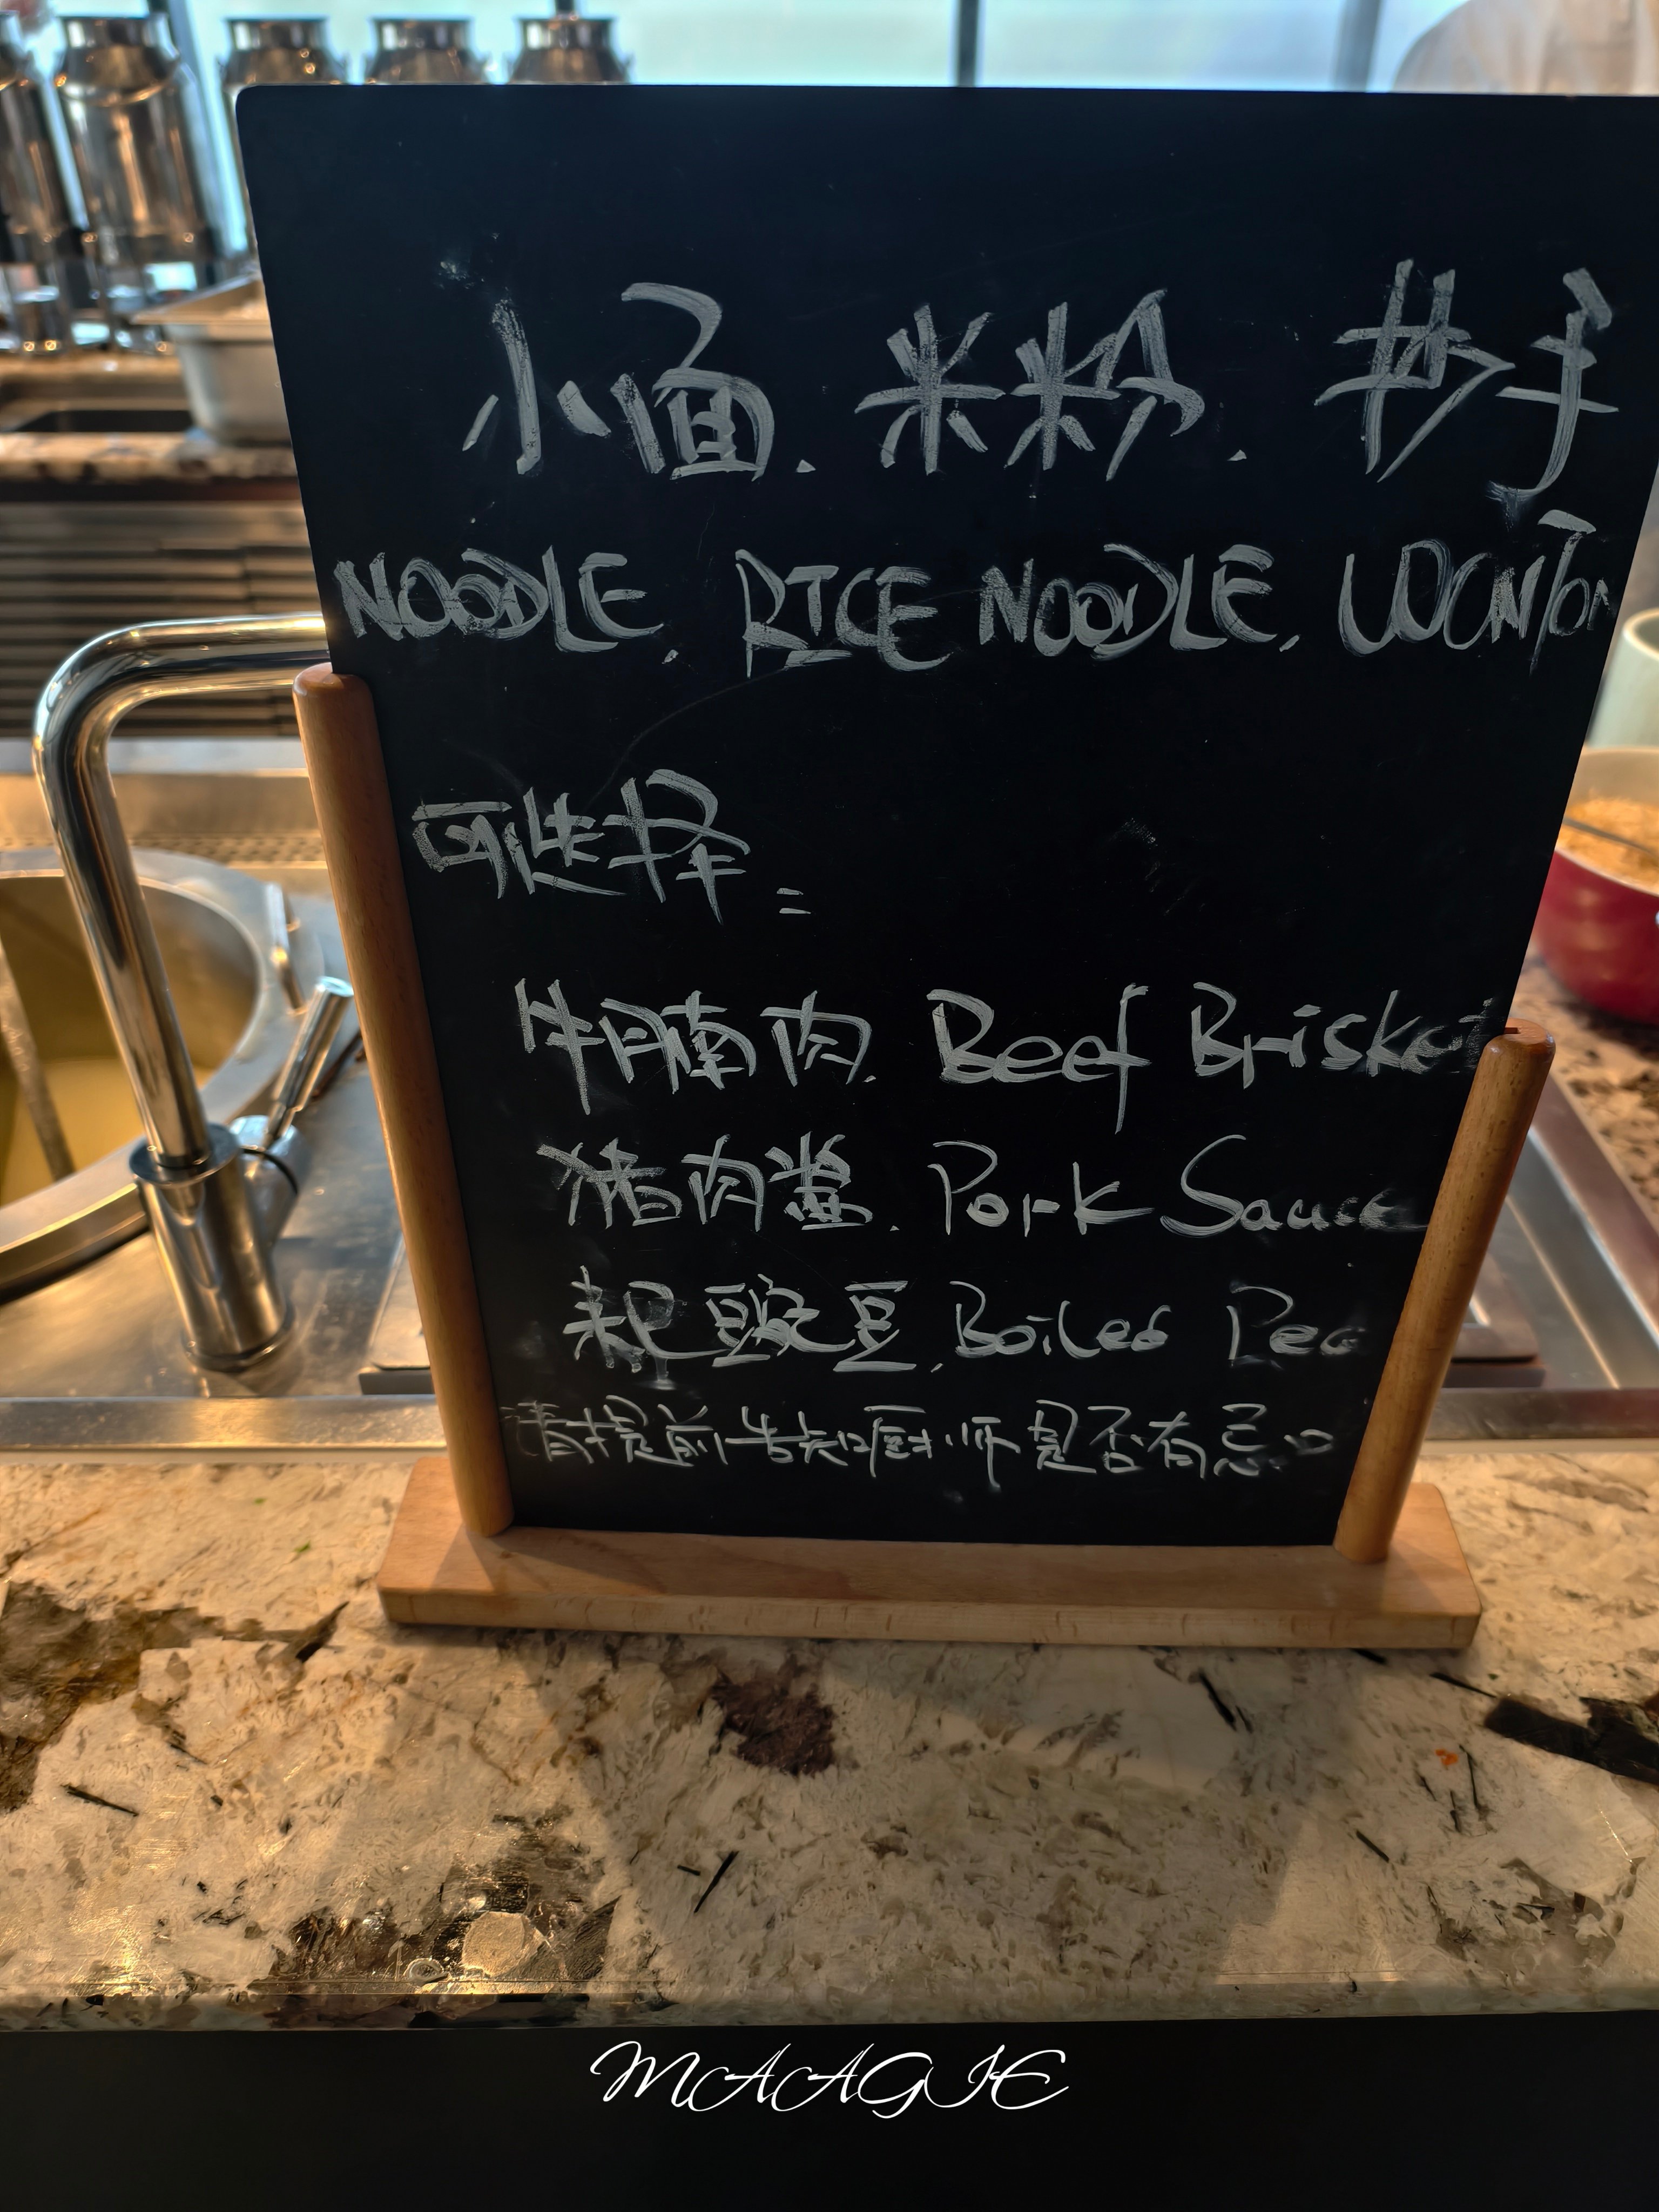 小面. 米粉. 抄手
NOODLE, RICE NOODLE, WONTON
可选择:
牛腩肉. Beef Brisket
猪肉酱. Pork Sauce
耙豌豆. Boiled Pea
请提前告知厨师是否有忌口
MAAGIE